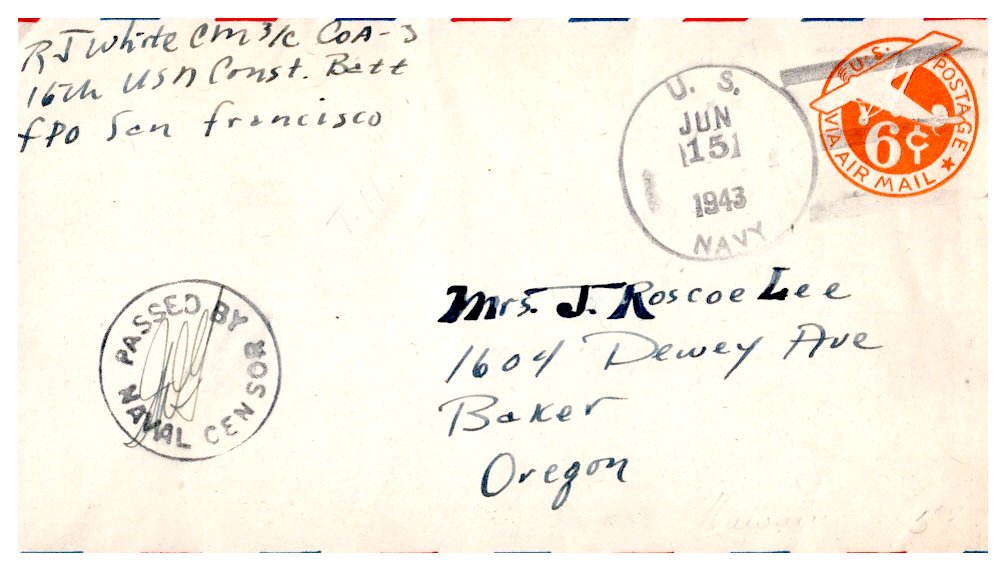 R J White CM 3/c CoA-3
16th USN Const. Batt
fpo San francisco
U. S.
JUN
15
1943
NAVY
U.S. POSTAGE
6¢
VIA AIR MAIL
PASSED BY
NAVAL CENSOR
Mrs. J. Roscoe Lee
1604 Dewey Ave
Baker
Oregon